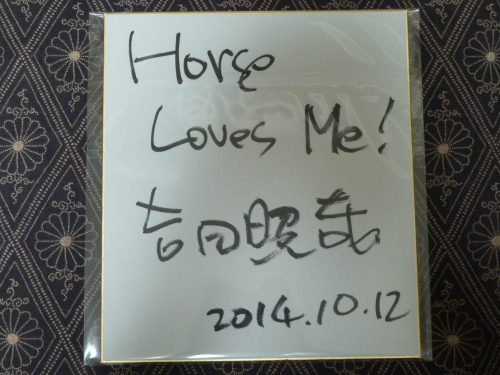 Horse
Loves Me!
吉田照哉
2014.10.12